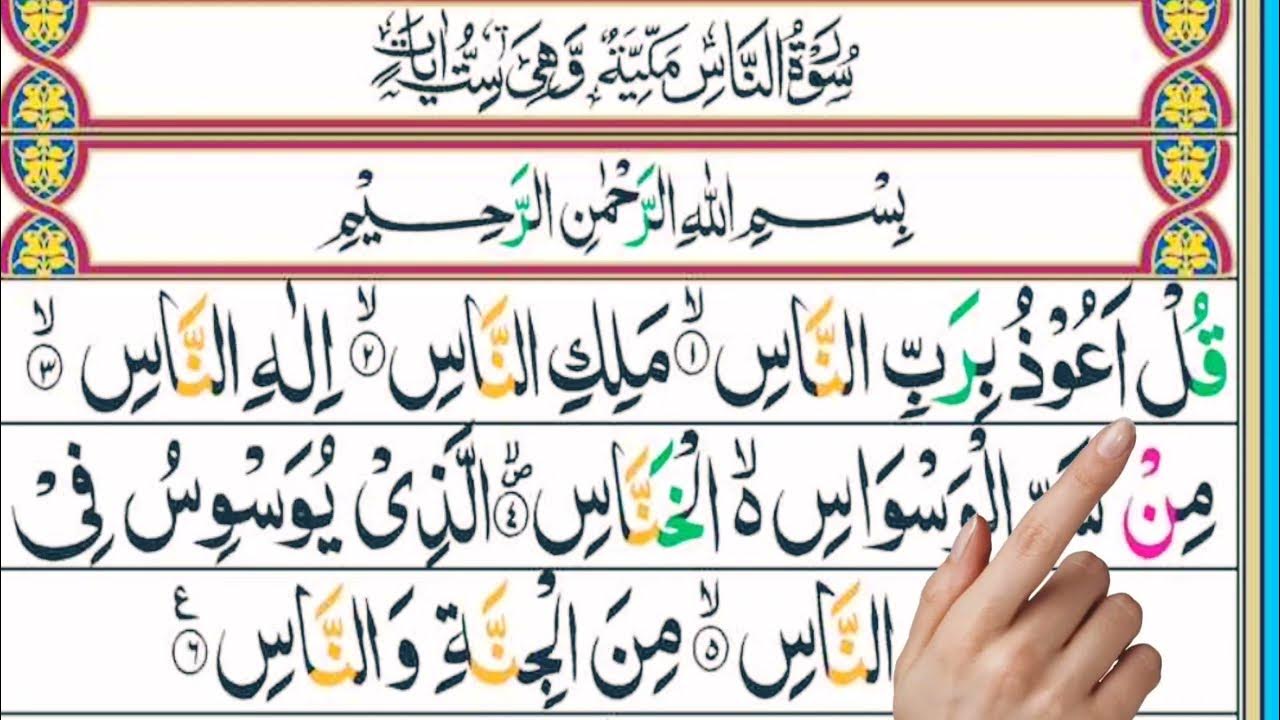 سُوْرَةُ النَّاسِ مَكِّيَّةٌ وَّهِیَ سِتُّ اٰیَاتٍ
بِسْمِ اللّٰهِ الرَّحْمٰنِ الرَّحِیْمِ
قُلْ اَعُوْذُ بِرَبِّ النَّاسِ ۙ﴿۱﴾ مَلِكِ النَّاسِ ۙ﴿۲﴾ اِلٰهِ النَّاسِ ۙ﴿۳﴾
مِنْ الْوَسْوَاسِ ۙ۬ الْخَنَّاسِ ۪ۙ﴿۴﴾ الَّذِیْ یُوَسْوِسُ فِیْ
النَّاسِ ۙ﴿۵﴾ مِنَ الْجِنَّةِ وَالنَّاسِ ﴿۶﴾ ع